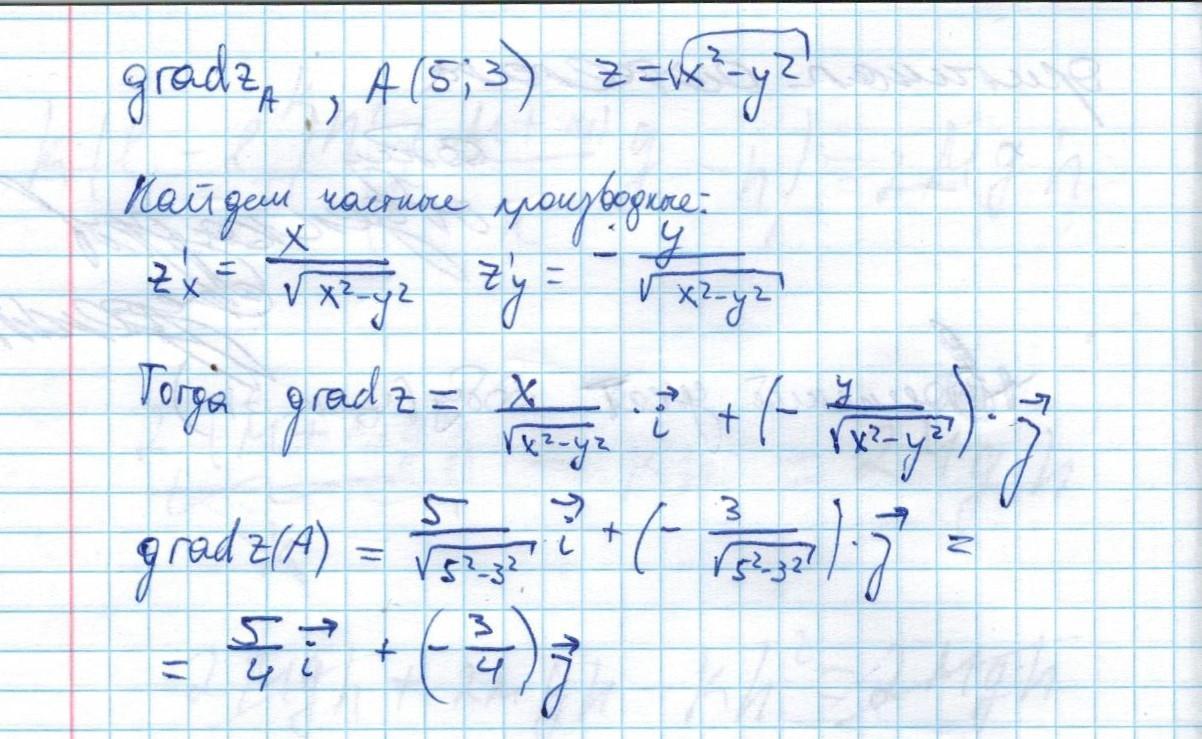 grad z_A , A(5; 3) z = √(x²-y²)
Найдем частные производные:
z'x = x/√(x²-y²) z'y = - y/√(x²-y²)
Тогда grad z = x/√(x²-y²) · i⃗ + (- y/√(x²-y²)) · j⃗
grad z(A) = 5/√(5²-3²) · i⃗ + (- 3/√(5²-3²)) · j⃗ =
= 5/4 i⃗ + (- 3/4) j⃗